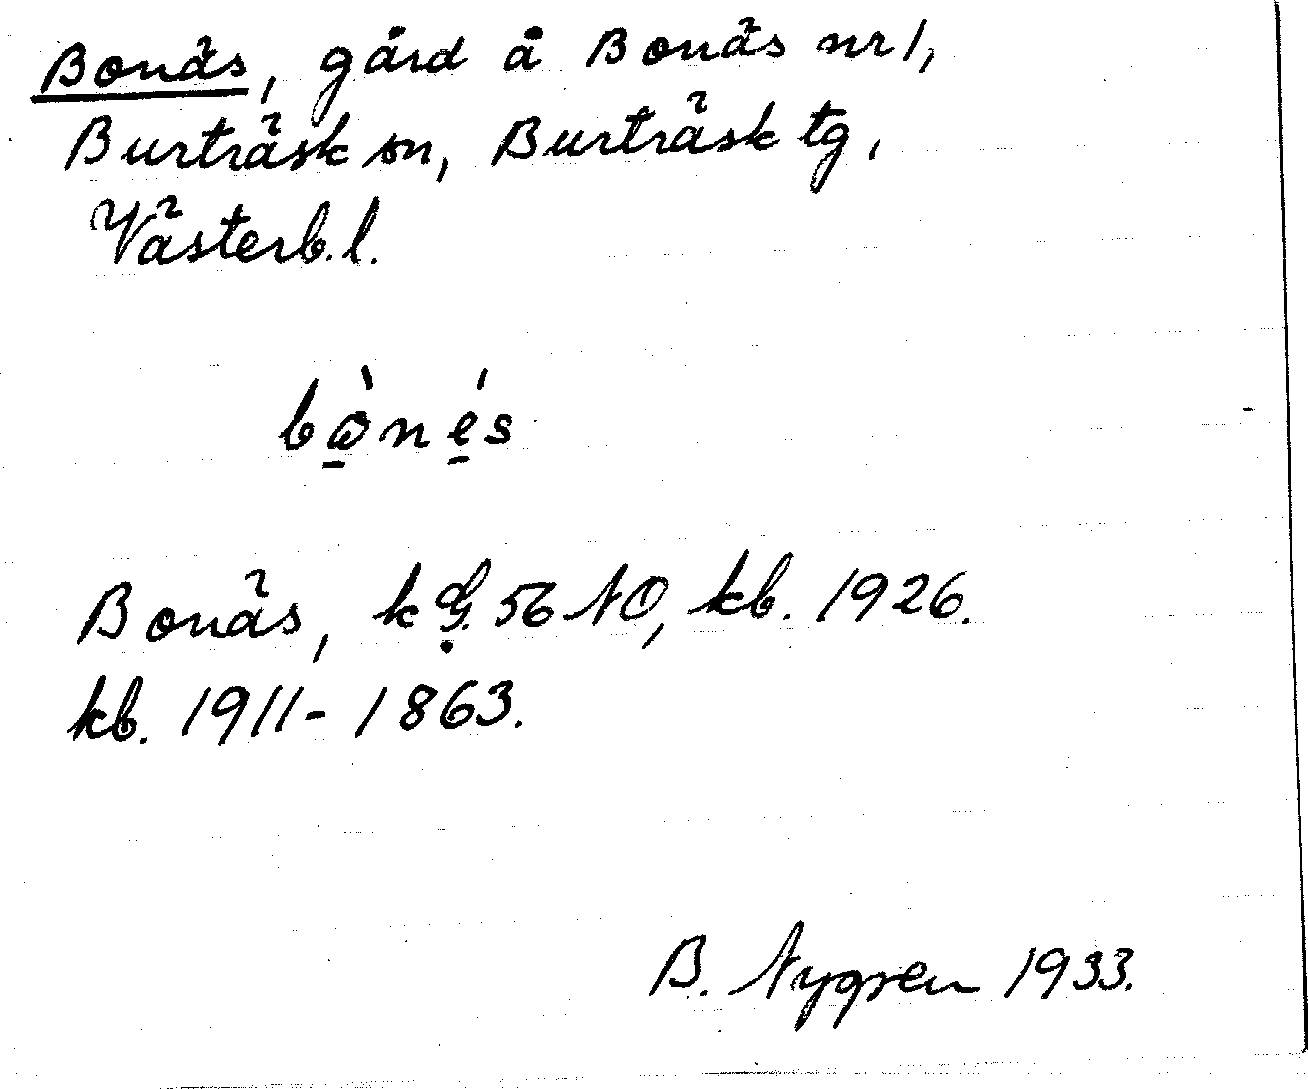 Bonäs, gård å Bonäs nr 1,
Burträsk sn, Burträsk tg,
Västerb.l.
bò̱né̱s
Bonäs, k G. 56 NO, kb. 1926.
kb. 1911-1863.
B. Nygren 1933.